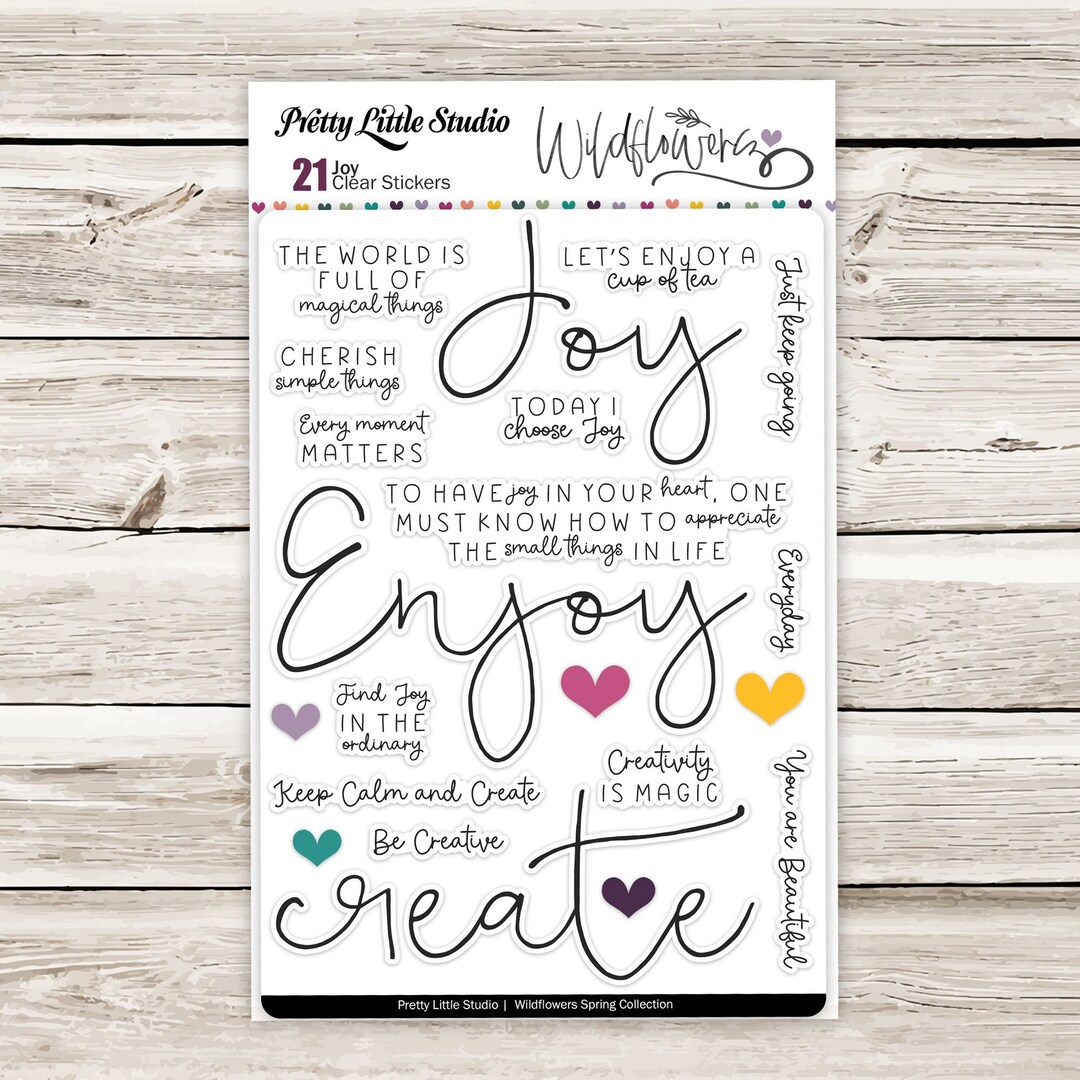 Pretty Little Studio
Wildflowers
21 Joy
Clear Stickers
THE WORLD IS
FULL OF
magical things
Joy
LET'S ENJOY A
cup of tea
Just keep going
CHERISH
simple things
TODAY I
choose Joy
Every moment
MATTERS
TO HAVE joy IN YOUR heart, ONE
MUST KNOW HOW TO appreciate
THE small things IN LIFE
Enjoy
Everyday
Find Joy
IN THE
ordinary
Creativity
IS MAGIC
You are Beautiful
Keep Calm and Create
Be Creative
create
Pretty Little Studio | Wildflowers Spring Collection